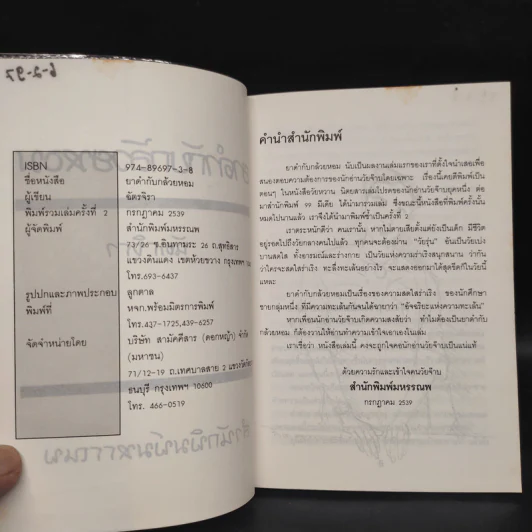 6-2-97
ISBN 974-89697-3-8
ชื่อหนังสือ ยาดำกับกล้วยหอม
ผู้เขียน ฉัตรจิรา
พิมพ์รวมเล่มครั้งที่ 2 กรกฎาคม 2539
ผู้จัดพิมพ์ สำนักพิมพ์มหรรณพ
73/26 ซ.อินทามระ 26 ถ.สุทธิสาร
แขวงดินแดง เขตห้วยขวาง กรุงเทพฯ
โทร.693-6437
รูปปกและภาพประกอบ ลูกตาล
พิมพ์ที่ หจก.พร้อมมิตรการพิมพ์
โทร.437-1725,439-6257
จัดจำหน่ายโดย บริษัท สามัคคีสาร (ดอกหญ้า) จำกัด
(มหาชน)
71/12-19 ถ.เทศบาลสาย 2
ธนบุรี กรุงเทพฯ 10600
โทร. 466-0519
คำนำสำนักพิมพ์
ยาดำกับกล้วยหอม นับเป็นผลงานเล่มแรกของเราที่ตั้งใจนำเสนอเพื่อ
สนองตอบความต้องการของนักอ่านวัยจ๊าบโดยเฉพาะ เรื่องนี้เคยตีพิมพ์เป็น
ตอนๆ ในหนังสือวัยหวาน นิตยสารเล่มโปรดของนักอ่านวัยจ๊าบยุคหนึ่ง ต่อ
มาสำนักพิมพ์ 99 มีเดีย ได้นำมารวมเล่ม ซึ่งขณะนี้หนังสือที่พิมพ์ครั้งนั้น
หมดไปนานแล้ว เราจึงได้นำมาพิมพ์ซ้ำเป็นครั้งที่ 2
เราตระหนักดีว่า คนเรานั้น หากไม่ตายเสียตั้งแต่ยังเป็นเด็ก มีชีวิต
อยู่รอดไปถึงวัยกลางคนไปแล้ว ทุกคนจะต้องผ่าน "วัยรุ่น" อันเป็นวัยเบ่ง
บานสดใส ทั้งอารมณ์และร่างกาย เป็นวัยแห่งความร่าเริงสนุกสนาน ว่ากัน
ว่าใครจะสดใสร่าเริง ทะลึ่งทะเล้นอย่างไร จะแสดงออกมาได้สุดขีดก็ในวัยนี้
แหละ
ยาดำกับกล้วยหอมเป็นเรื่องของความสดใสร่าเริง ของนักศึกษา
ชายกลุ่มหนึ่ง ที่มีความทะเล้นกันจนได้ฉายาว่า "อัจฉริยะแห่งความทะเล้น"
หากเพื่อนนักอ่านวัยจ๊าบเกิดความสงสัยว่า ทำไมต้องเป็นยาดำกับ
กล้วยหอม ก็ต้องวานให้อ่านทำความเข้าใจเอาเองในเล่ม
เราเชื่อว่า หนังสือเล่มนี้ คงจะถูกใจคอนักอ่านวัยจ๊าบเป็นแน่แท้
ด้วยความรักและเข้าใจคนวัยจ๊าบ
สำนักพิมพ์มหรรณพ
กรกฎาคม 2539